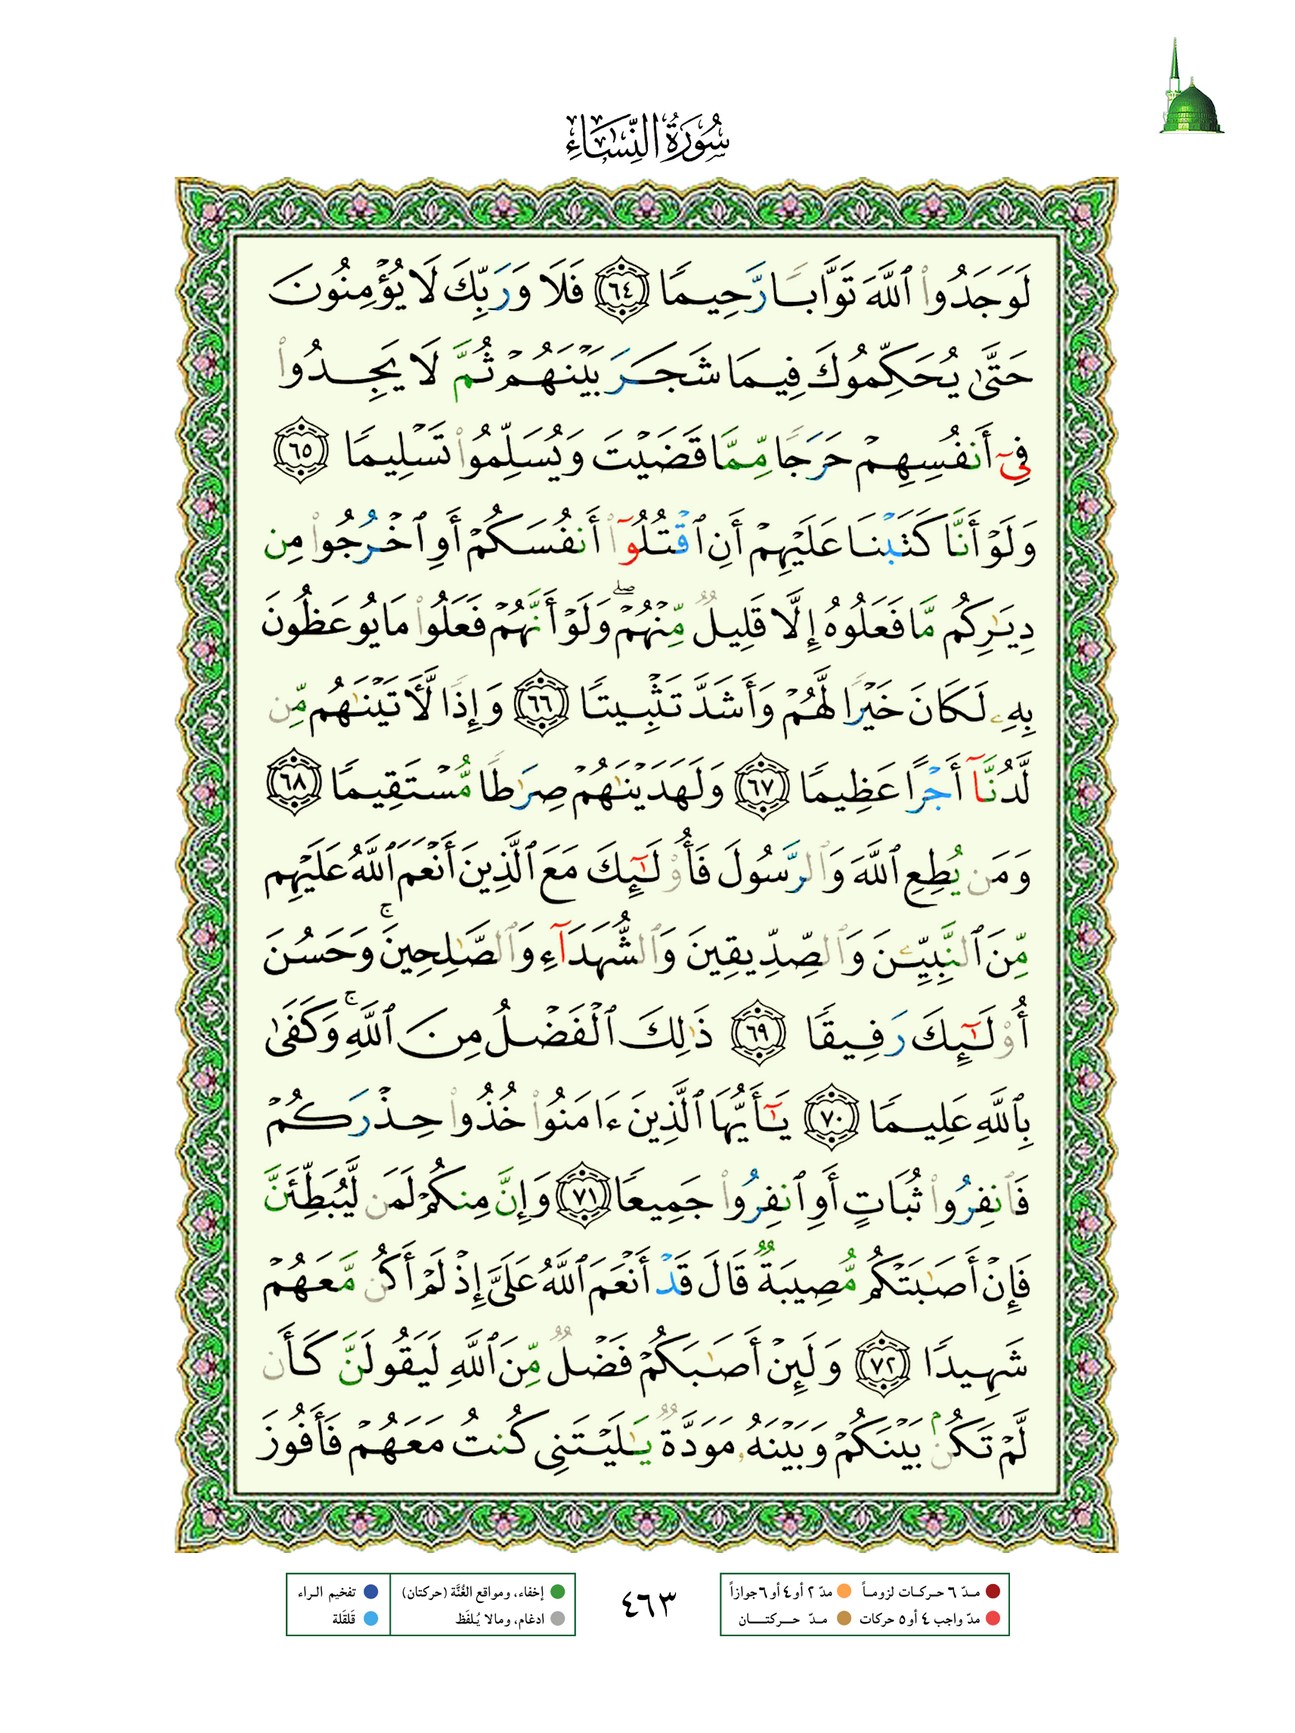 سُورَةُ النِّسَاءِ
لَوَجَدُوا۟ ٱللَّهَ تَوَّابًا رَّحِيمًا ٦٤ فَلَا وَرَبِّكَ لَا يُؤْمِنُونَ
حَتَّىٰ يُحَكِّمُوكَ فِيمَا شَجَرَ بَيْنَهُمْ ثُمَّ لَا يَجِدُوا۟
فِىٓ أَنفُسِهِمْ حَرَجًا مِّمَّا قَضَيْتَ وَيُسَلِّمُوا۟ تَسْلِيمًا ٦٥
وَلَوْ أَنَّا كَتَبْنَا عَلَيْهِمْ أَنِ ٱقْتُلُوٓا۟ أَنفُسَكُمْ أَوِ ٱخْرُجُوا۟ مِن
دِيَـٰرِكُم مَّا فَعَلُوهُ إِلَّا قَلِيلٌ مِّنْهُمْ ۖ وَلَوْ أَنَّهُمْ فَعَلُوا۟ مَا يُوعَظُونَ
بِهِۦ لَكَانَ خَيْرًا لَّهُمْ وَأَشَدَّ تَثْبِيتًا ٦٦ وَإِذًا لَّـَٔاتَيْنَـٰهُم مِّن
لَّدُنَّآ أَجْرًا عَظِيمًا ٦٧ وَلَهَدَيْنَـٰهُمْ صِرَٰطًا مُّسْتَقِيمًا ٦٨
وَمَن يُطِعِ ٱللَّهَ وَٱلرَّسُولَ فَأُو۟لَـٰٓئِكَ مَعَ ٱلَّذِينَ أَنْعَمَ ٱللَّهُ عَلَيْهِم
مِّنَ ٱلنَّبِيِّـۧنَ وَٱلصِّدِّيقِينَ وَٱلشُّهَدَآءِ وَٱلصَّـٰلِحِينَ ۚ وَحَسُنَ
أُو۟لَـٰٓئِكَ رَفِيقًا ٦٩ ذَٰلِكَ ٱلْفَضْلُ مِنَ ٱللَّهِ ۚ وَكَفَىٰ
بِٱللَّهِ عَلِيمًا ٧٠ يَـٰٓأَيُّهَا ٱلَّذِينَ ءَامَنُوا۟ خُذُوا۟ حِذْرَكُمْ
فَٱنفِرُوا۟ ثُبَاتٍ أَوِ ٱنفِرُوا۟ جَمِيعًا ٧١ وَإِنَّ مِنكُمْ لَمَن لَّيُبَطِّئَنَّ
فَإِنْ أَصَـٰبَتْكُم مُّصِيبَةٌ قَالَ قَدْ أَنْعَمَ ٱللَّهُ عَلَىَّ إِذْ لَمْ أَكُن مَّعَهُمْ
شَهِيدًا ٧٢ وَلَئِنْ أَصَـٰبَكُمْ فَضْلٌ مِّنَ ٱللَّهِ لَيَقُولَنَّ كَأَن
لَّمْ تَكُنۢ بَيْنَكُمْ وَبَيْنَهُۥ مَوَدَّةٌ يَـٰلَيْتَنِى كُنتُ مَعَهُمْ فَأَفُوزَ
مـدّ ٦ حـركـات لزومـاً
مدّ ٢ أو ٤ أو ٦ جوازاً
مدّ واجب ٤ أو ٥ حركات
مـدّ حـــركتـــان
٤٦٣
إخفاء، ومواقع الغُنَّة (حركتان)
تفخيم الـراء
ادغام، ومالا يُـلفَظ
قَلقَلة